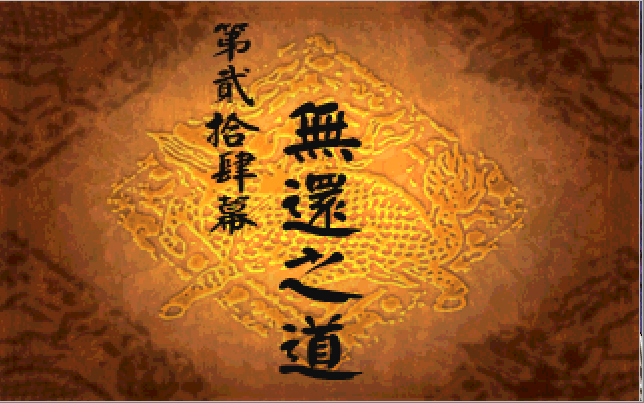 第貳拾肆幕
無還之道